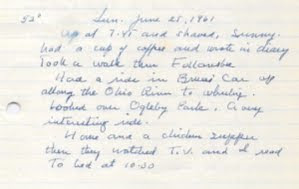 52° Sun. June 25, 1961
Up at 7.45 and shaved, Sunny.
had a cup of coffee and wrote in diary
Took a walk thru Follansbe
Had a ride in Car up
along the Ohio River to wheeling.
Looked over Ogleby Park. A very
interesting ride.
Home and a chicken supper
then they watched T.V. and I read
To bed at 10-30